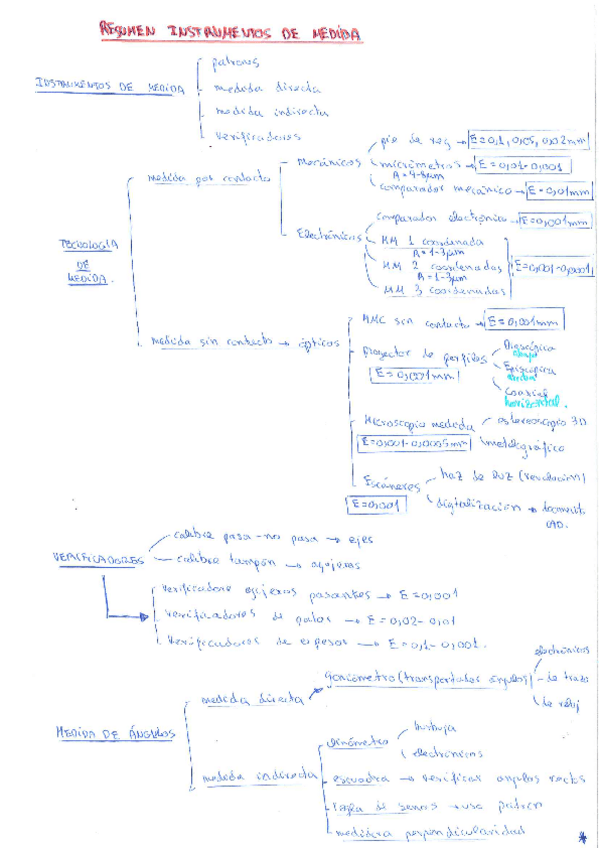 RESUMEN INSTRUMENTOS DE MEDIDA
INSTRUMENTOS DE MEDIDA
patrones
medida directa
medida indirecta
verificadores
TECNOLOGÍA
DE
MEDIDA.
medida por contacto
Mecánicos
pie de rey → E=0,1, 0,05, 0,02mm
micrómetros → E=0,01-0,001
comparador mecánico → E=0,01mm
Electrónicos
comparador electrónico → E=0,001mm
MM 1 coordenada
A=1-3µm
MM 2 coordenadas
A=1-3µm
MM 3 coordenadas
E=0,001-0,0001
medida sin contacto → ópticos
MMC sin contacto → E=0,001mm
Proyector de perfiles
E=0,001mm
Diascópica
Episcópica
Coaxial
horizontal.
Microscopio medida
E=0,001-0,0005mm
estereoscopio 3D
metalográfico
Escáneres
E=0,001
haz de luz (revolución)
digitalización → documento
CAD.
VERIFICADORES
calibre pasa-no pasa → ejes
calibre tampón → agujeros
verificadore agujeros pasantes → E=0,001
verificadores de galos → E=0,02-0,01
Verificadores de espesos → E=0,1-0,001.
MEDIDA DE ÁNGULOS
medida directa
goniómetro (transportador ángulos)
electrónicos
de trazo
de reloj
medida indirecta
clinómetro
burbuja
electrónicos
escuadra → verificar angulos rectos
regla de senos → usa patrón
medidora perpendicularidad